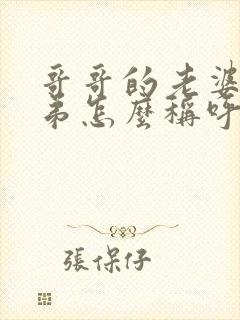 哥哥的老婆
弟怎麼稱呼
張保仔